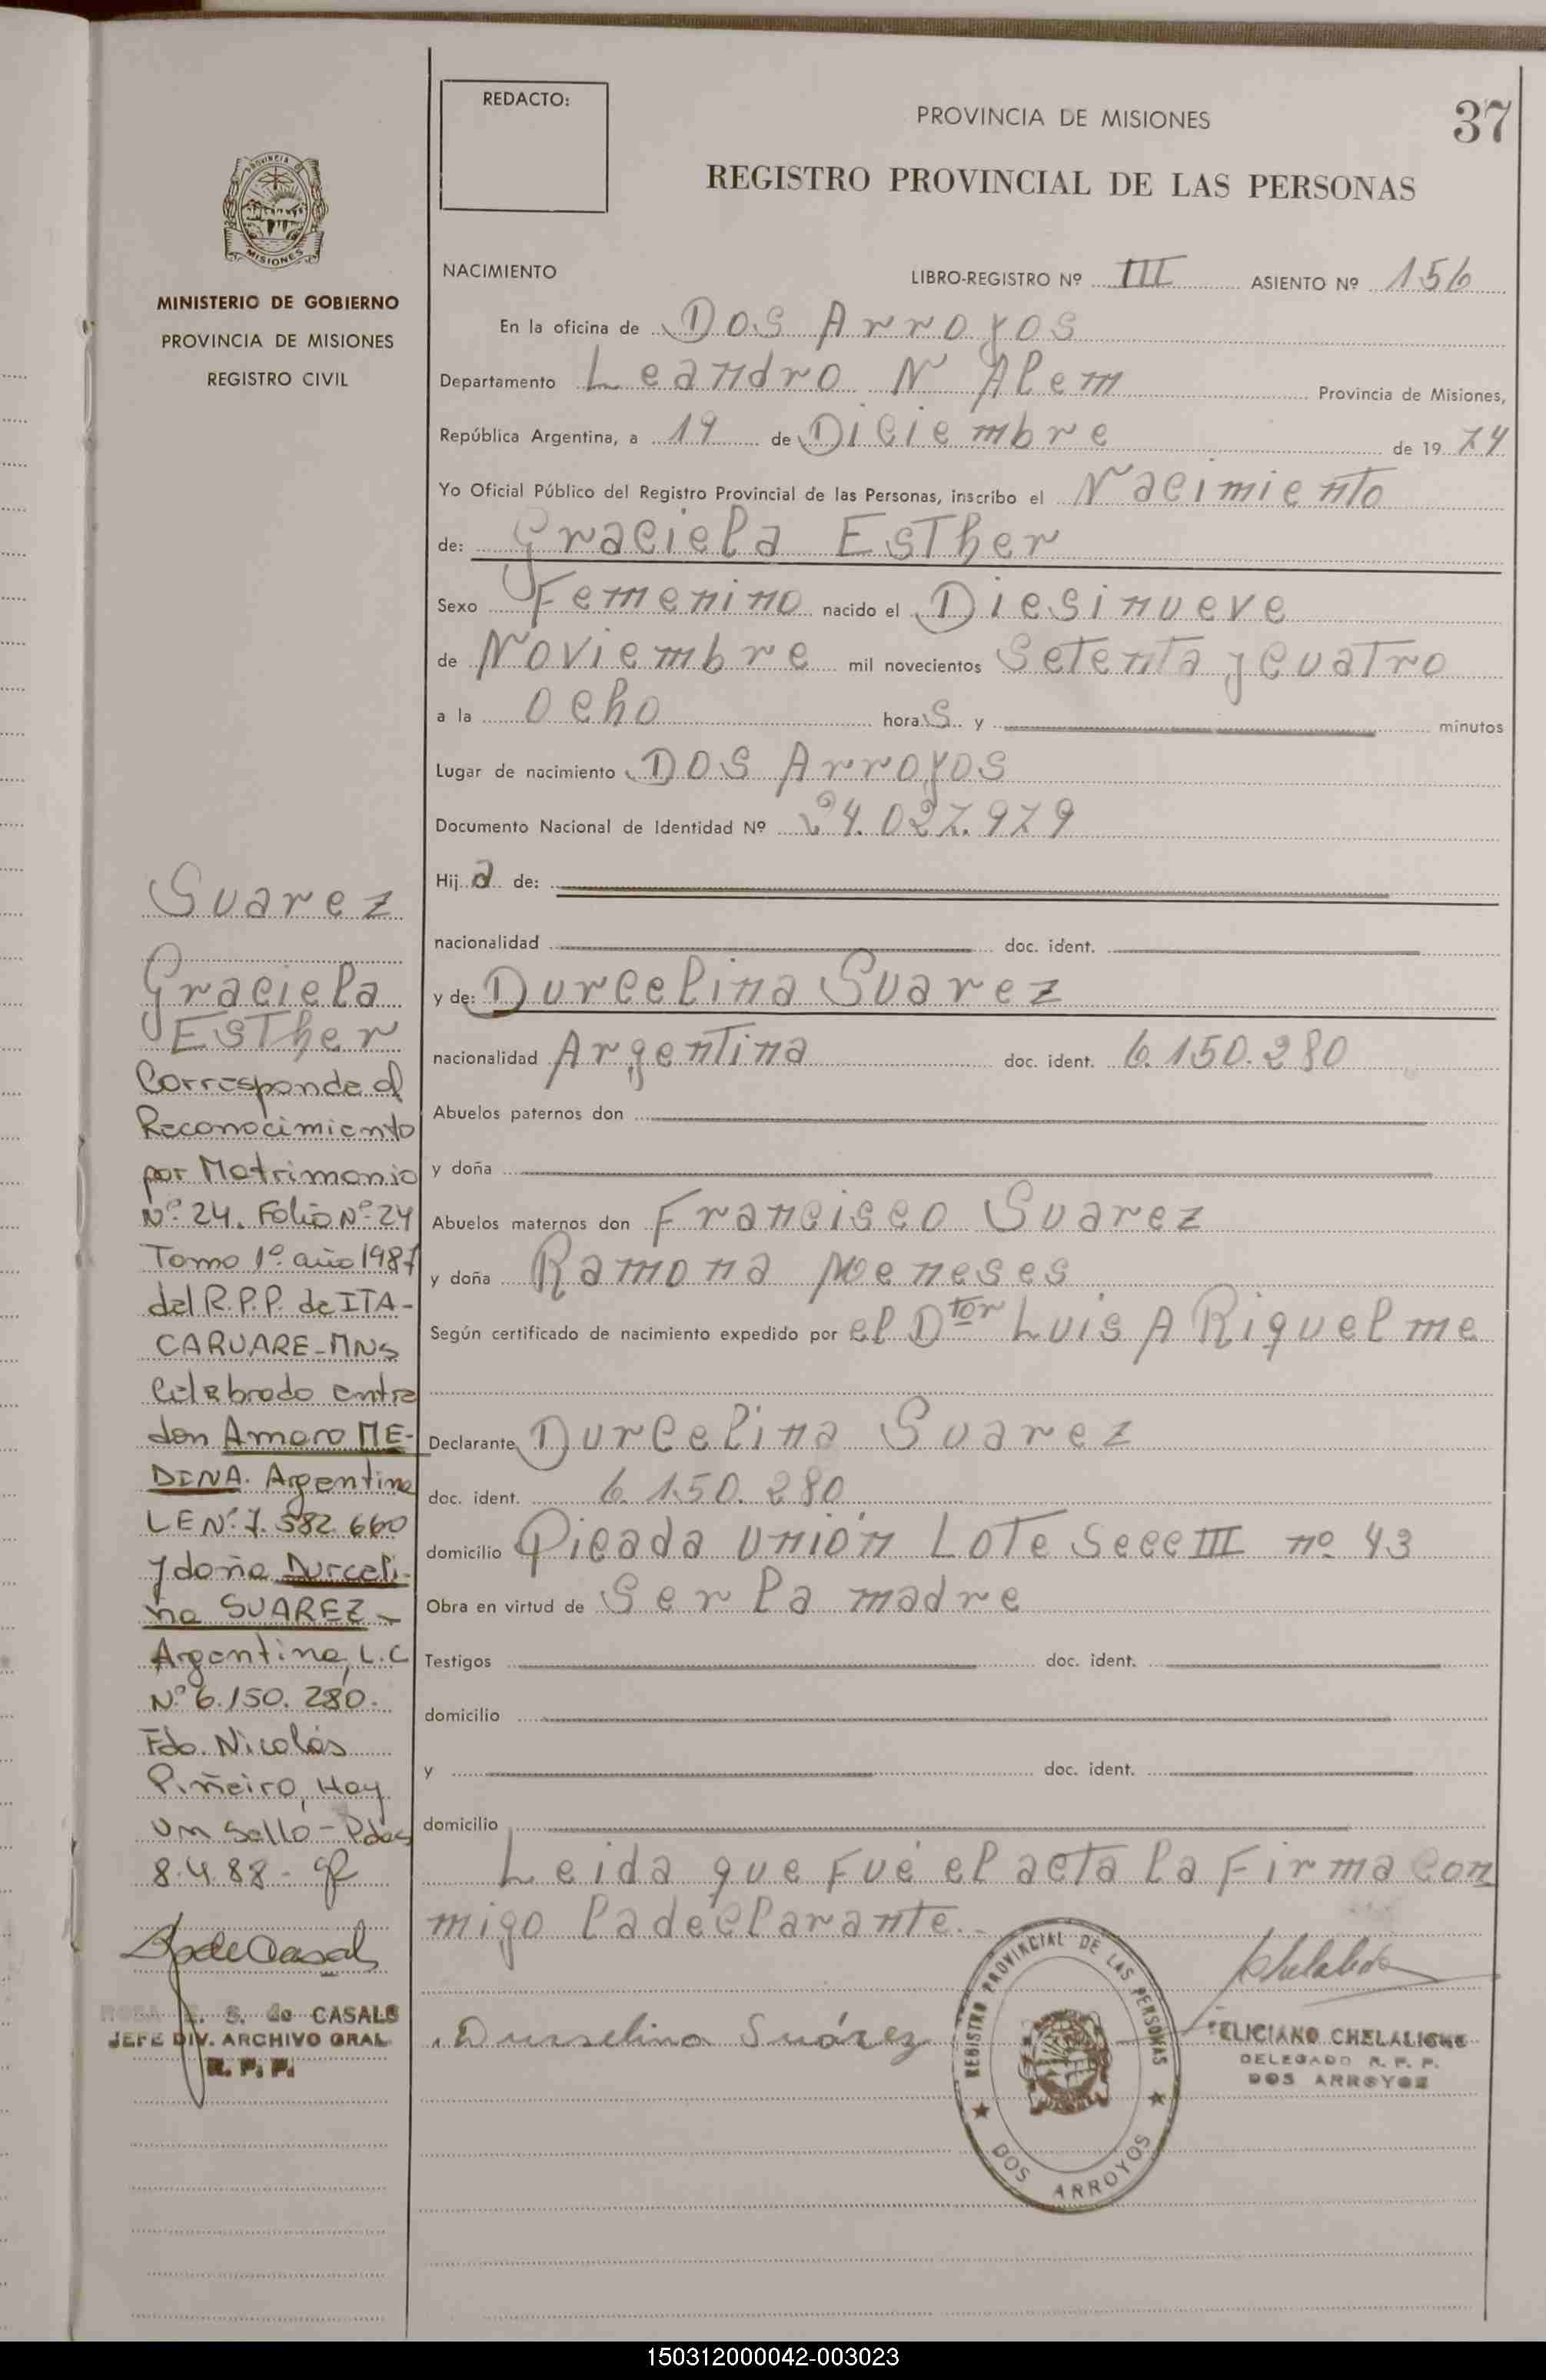 REDACTO:
PROVINCIA DE MISIONES
37
REGISTRO PROVINCIAL DE LAS PERSONAS
PROVINCIA
MISIONES
MINISTERIO DE GOBIERNO
PROVINCIA DE MISIONES
REGISTRO CIVIL
NACIMIENTO LIBRO-REGISTRO Nº III ASIENTO Nº 156
En la oficina de Dos Arroyos
Departamento Leandro N Alem Provincia de Misiones,
República Argentina, a 19 de Diciembre de 19 74
Yo Oficial Público del Registro Provincial de las Personas, inscribo el Nacimiento
de: Graciela Esther
Sexo Femenino nacido el Diesinueve
de Noviembre mil novecientos Setenta y Cuatro
a la ocho hora s y minutos
Lugar de nacimiento Dos Arroyos
Documento Nacional de Identidad Nº 24.027.979
Hij a de:
nacionalidad doc. ident.
y de: Durcelina Suarez
nacionalidad Argentina doc. ident. 6.150.280
Abuelos paternos don
y doña
Abuelos maternos don Francisco Suarez
y doña Ramona Meneses
Según certificado de nacimiento expedido por el Dtor Luis A Riquelme
Declarante Durcelina Suarez
doc. ident. 6.150.280
domicilio Picada Unión Lote Secc III nº 43
Obra en virtud de Ser la madre
Testigos doc. ident.
domicilio
y doc. ident.
domicilio
Leida que Fué el acta la Firma con
migo la declarante.
Durselina Suárez
REGISTRO PROVINCIAL DE LAS PERSONAS
DOS ARROYOS
FELICIANO CHELALICHE
DELEGADO R. P. P.
DOS ARROYOS
Suarez
Graciela
Esther
Corresponde al
Reconocimiento
por Matrimonio
Nº 24. Folio Nº 24
Tomo 1º año 1987
del R.P.P. de ITA-
CARUARE-MNS
Celebrado entre
don Amaro ME-
DINA. Argentino
LE Nº 7.582.660
y doña Durceli-
na SUAREZ-
Argentina, L.C
Nº 6.150.280.
Fdo. Nicolás
Piñeiro, Hay
un sello - Pdas
8.4.88-
E. S. de CASALS
JEFE DIV. ARCHIVO GRAL
R. P. P.
150312000042-003023